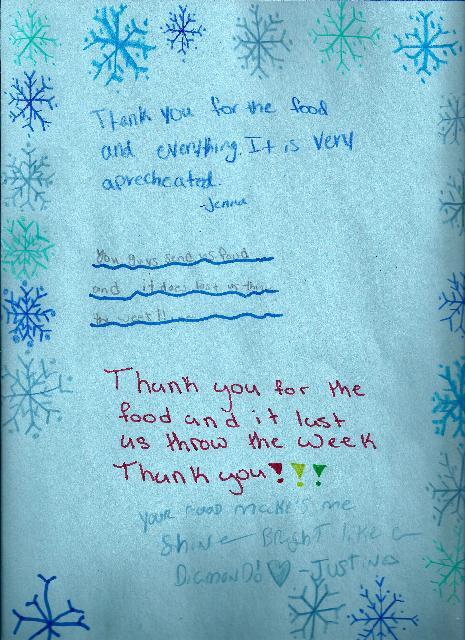 Thank you for the food
and everything. It is very
aprecheated.
-Jenna
You guys send us food
and it does last us thru
the week!!
Thank you for the
food and it last
us throw the week
Thank you!!!
Your food makes me
Shine Bright like a
Diamond! ♡ -Justine